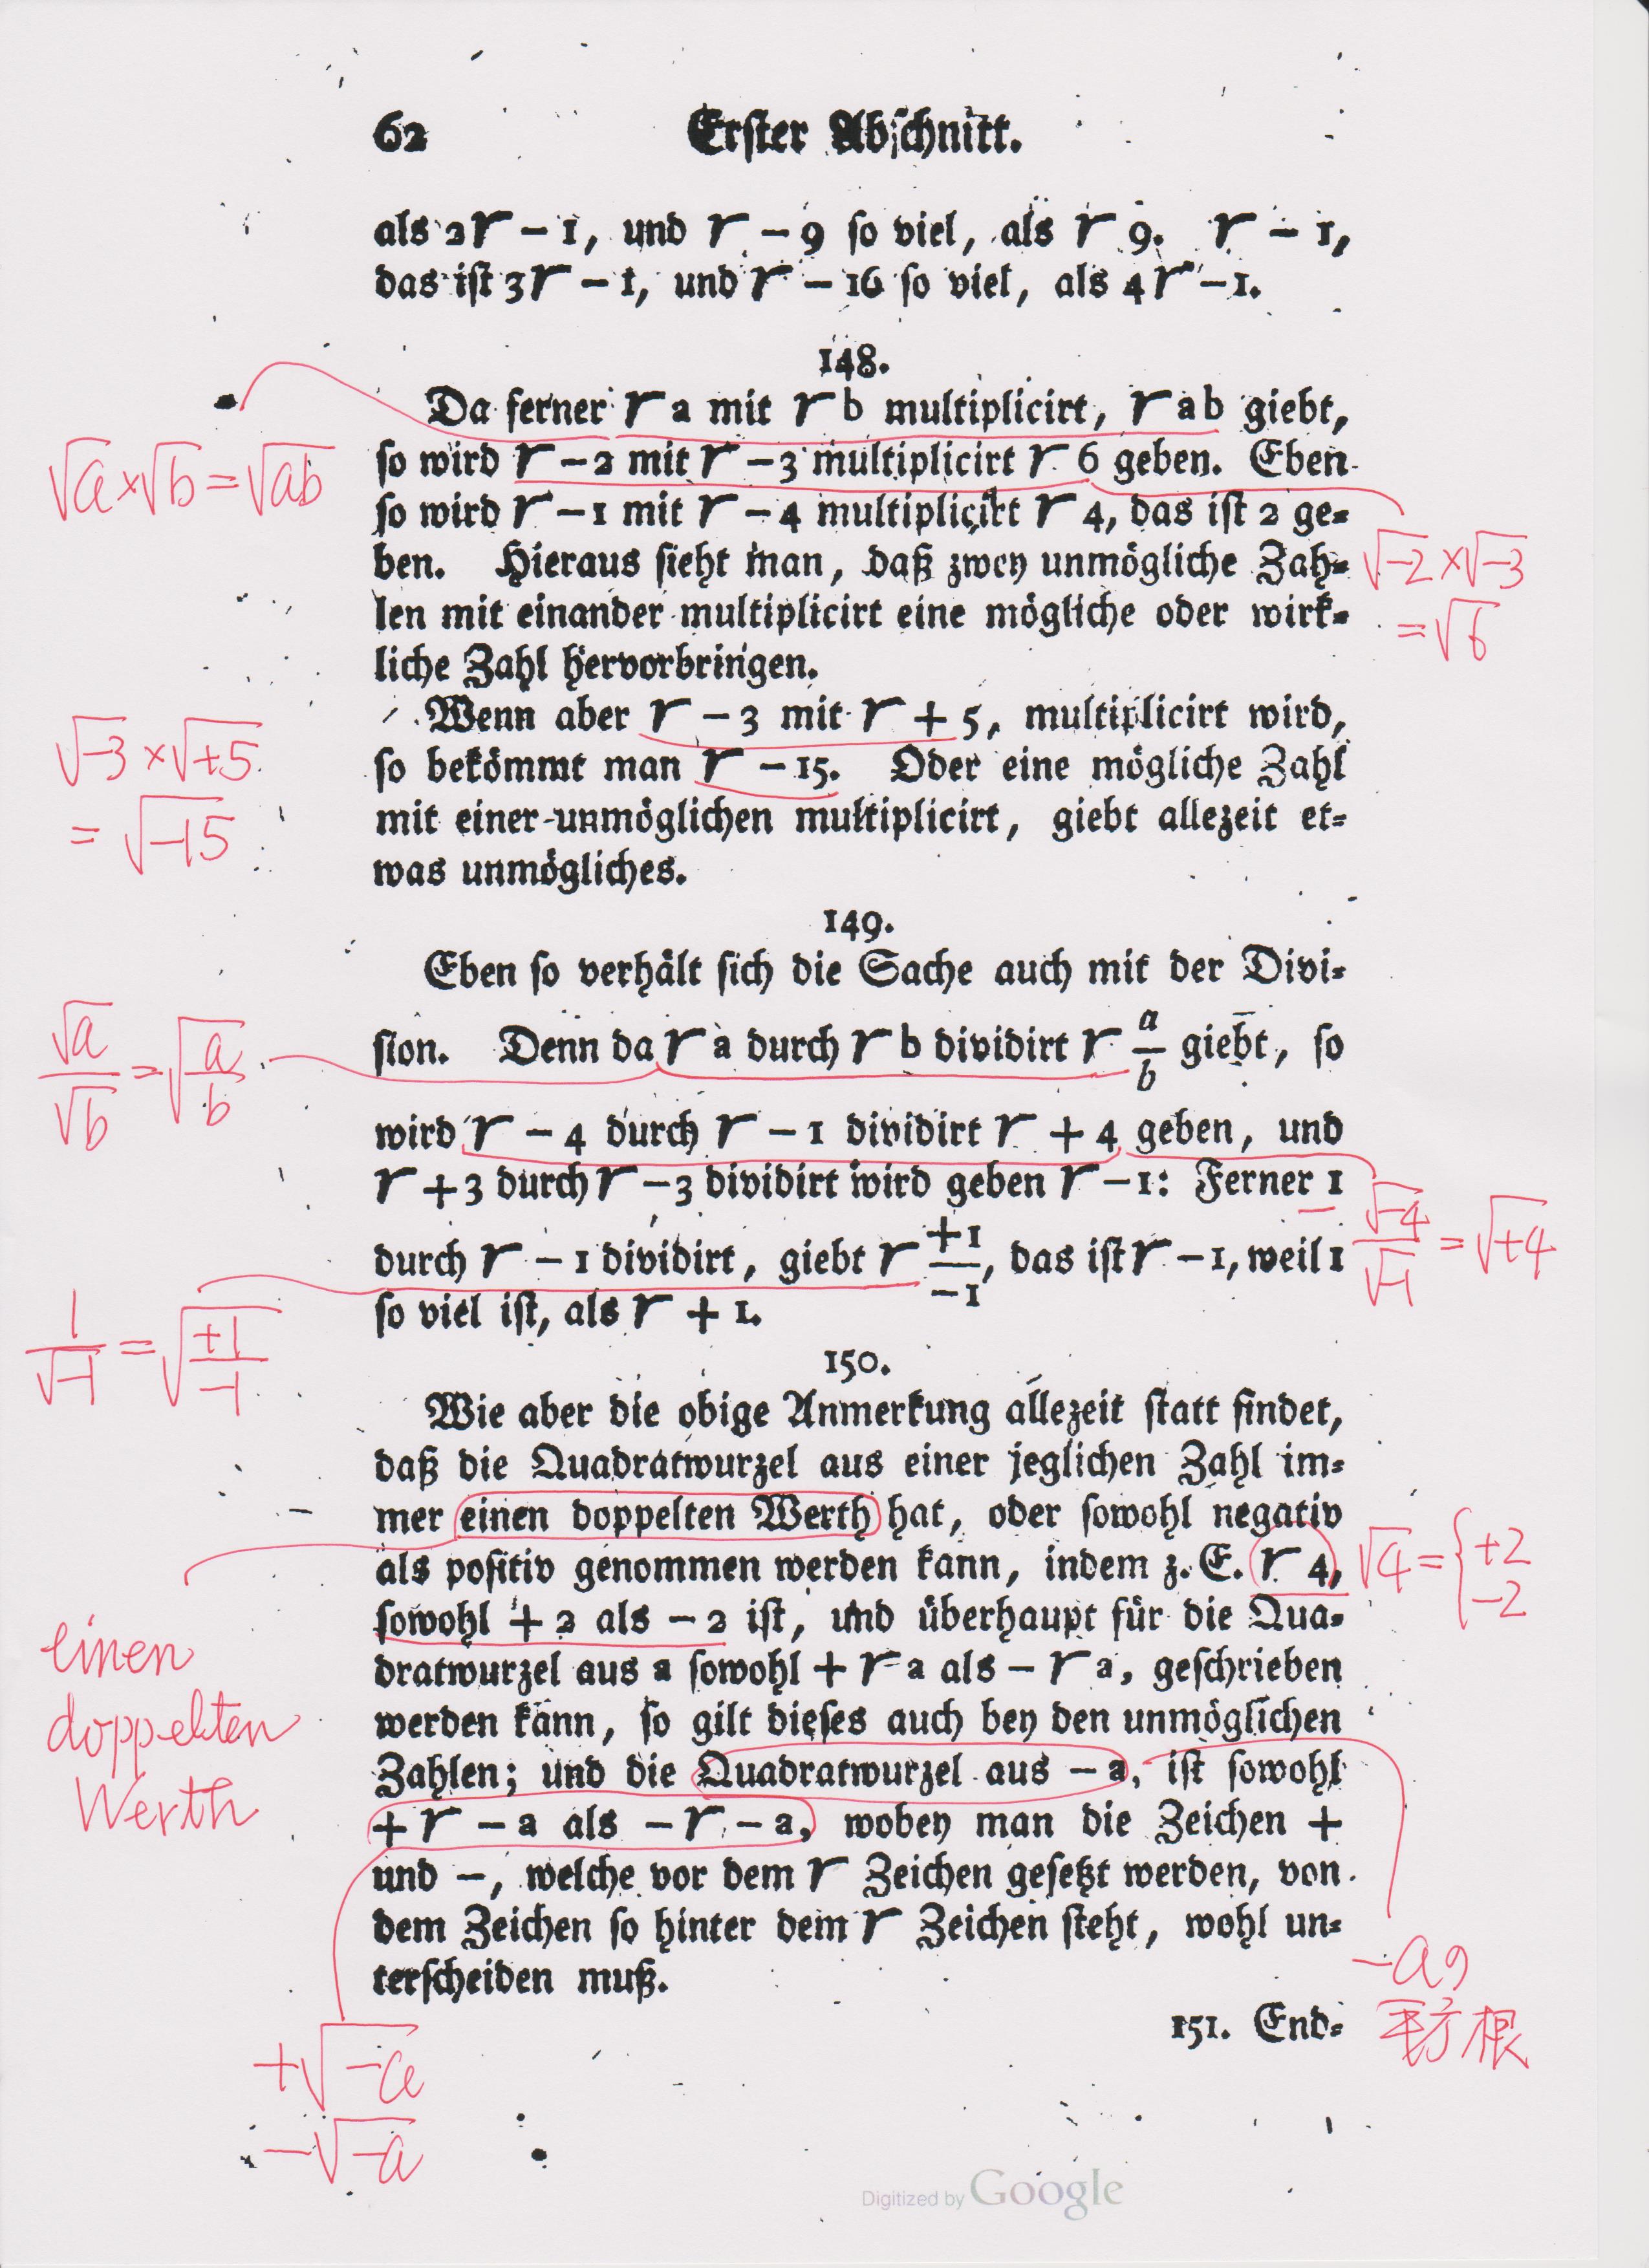 62 Erſter Abſchnitt.
als 2 √ − 1, und √ − 9 ſo viel, als √ 9. √ − 1,
das iſt 3 √ − 1, und √ − 16 ſo viel, als 4 √ − 1.
148.
Da ferner √ a mit √ b multiplicirt, √ ab giebt,
ſo wird √ − 2 mit √ − 3 multiplicirt √ 6 geben. Eben
ſo wird √ − 1 mit √ − 4 multiplicirt √ 4, das iſt 2 ge⸗
ben. Hieraus ſieht man, daß zwey unmögliche Zah⸗
len mit einander multiplicirt eine mögliche oder wirk⸗
liche Zahl hervorbringen.
√a × √b = √ab
√−2 × √−3
= √6
Wenn aber √ − 3 mit √ + 5, multiplicirt wird,
ſo bekömmt man √ − 15. Oder eine mögliche Zahl
mit einer unmöglichen multiplicirt, giebt allezeit et⸗
was unmögliches.
√−3 × √+5
= √−15
149.
Eben ſo verhält ſich die Sache auch mit der Divi⸗
ſion. Denn da √ a durch √ b dividirt √ a/b giebt, ſo
wird √ − 4 durch √ − 1 dividirt √ + 4 geben, und
√ + 3 durch √ − 3 dividirt wird geben √ − 1: Ferner 1
durch √ − 1 dividirt, giebt √ +1/−1, das iſt √ − 1, weil 1
ſo viel iſt, als √ + 1.
√a/√b = √a/b
√−4/√−1 = √+4
1/√−1 = √+1/−1
150.
Wie aber die obige Anmerkung allezeit ſtatt findet,
daß die Quadratwurzel aus einer jeglichen Zahl im⸗
mer einen doppelten Werth hat, oder ſowohl negativ
als poſitiv genommen werden kann, indem z. E. √ 4,
ſowohl + 2 als − 2 iſt, und überhaupt für die Qua⸗
dratwurzel aus a ſowohl + √ a als − √ a, geſchrieben
werden kann, ſo gilt dieſes auch bey den unmöglichen
Zahlen; und die Quadratwurzel aus − a, iſt ſowohl
+ √ − a als − √ − a, wobey man die Zeichen +
und −, welche vor dem √ Zeichen geſetzt werden, von
dem Zeichen ſo hinter dem √ Zeichen ſteht, wohl un⸗
terſcheiden muß.
√4 = { +2
−2
einen
doppelten
Werth
151. End⸗
−aの
平方根
+√−a
−√−a
Digitized by Google